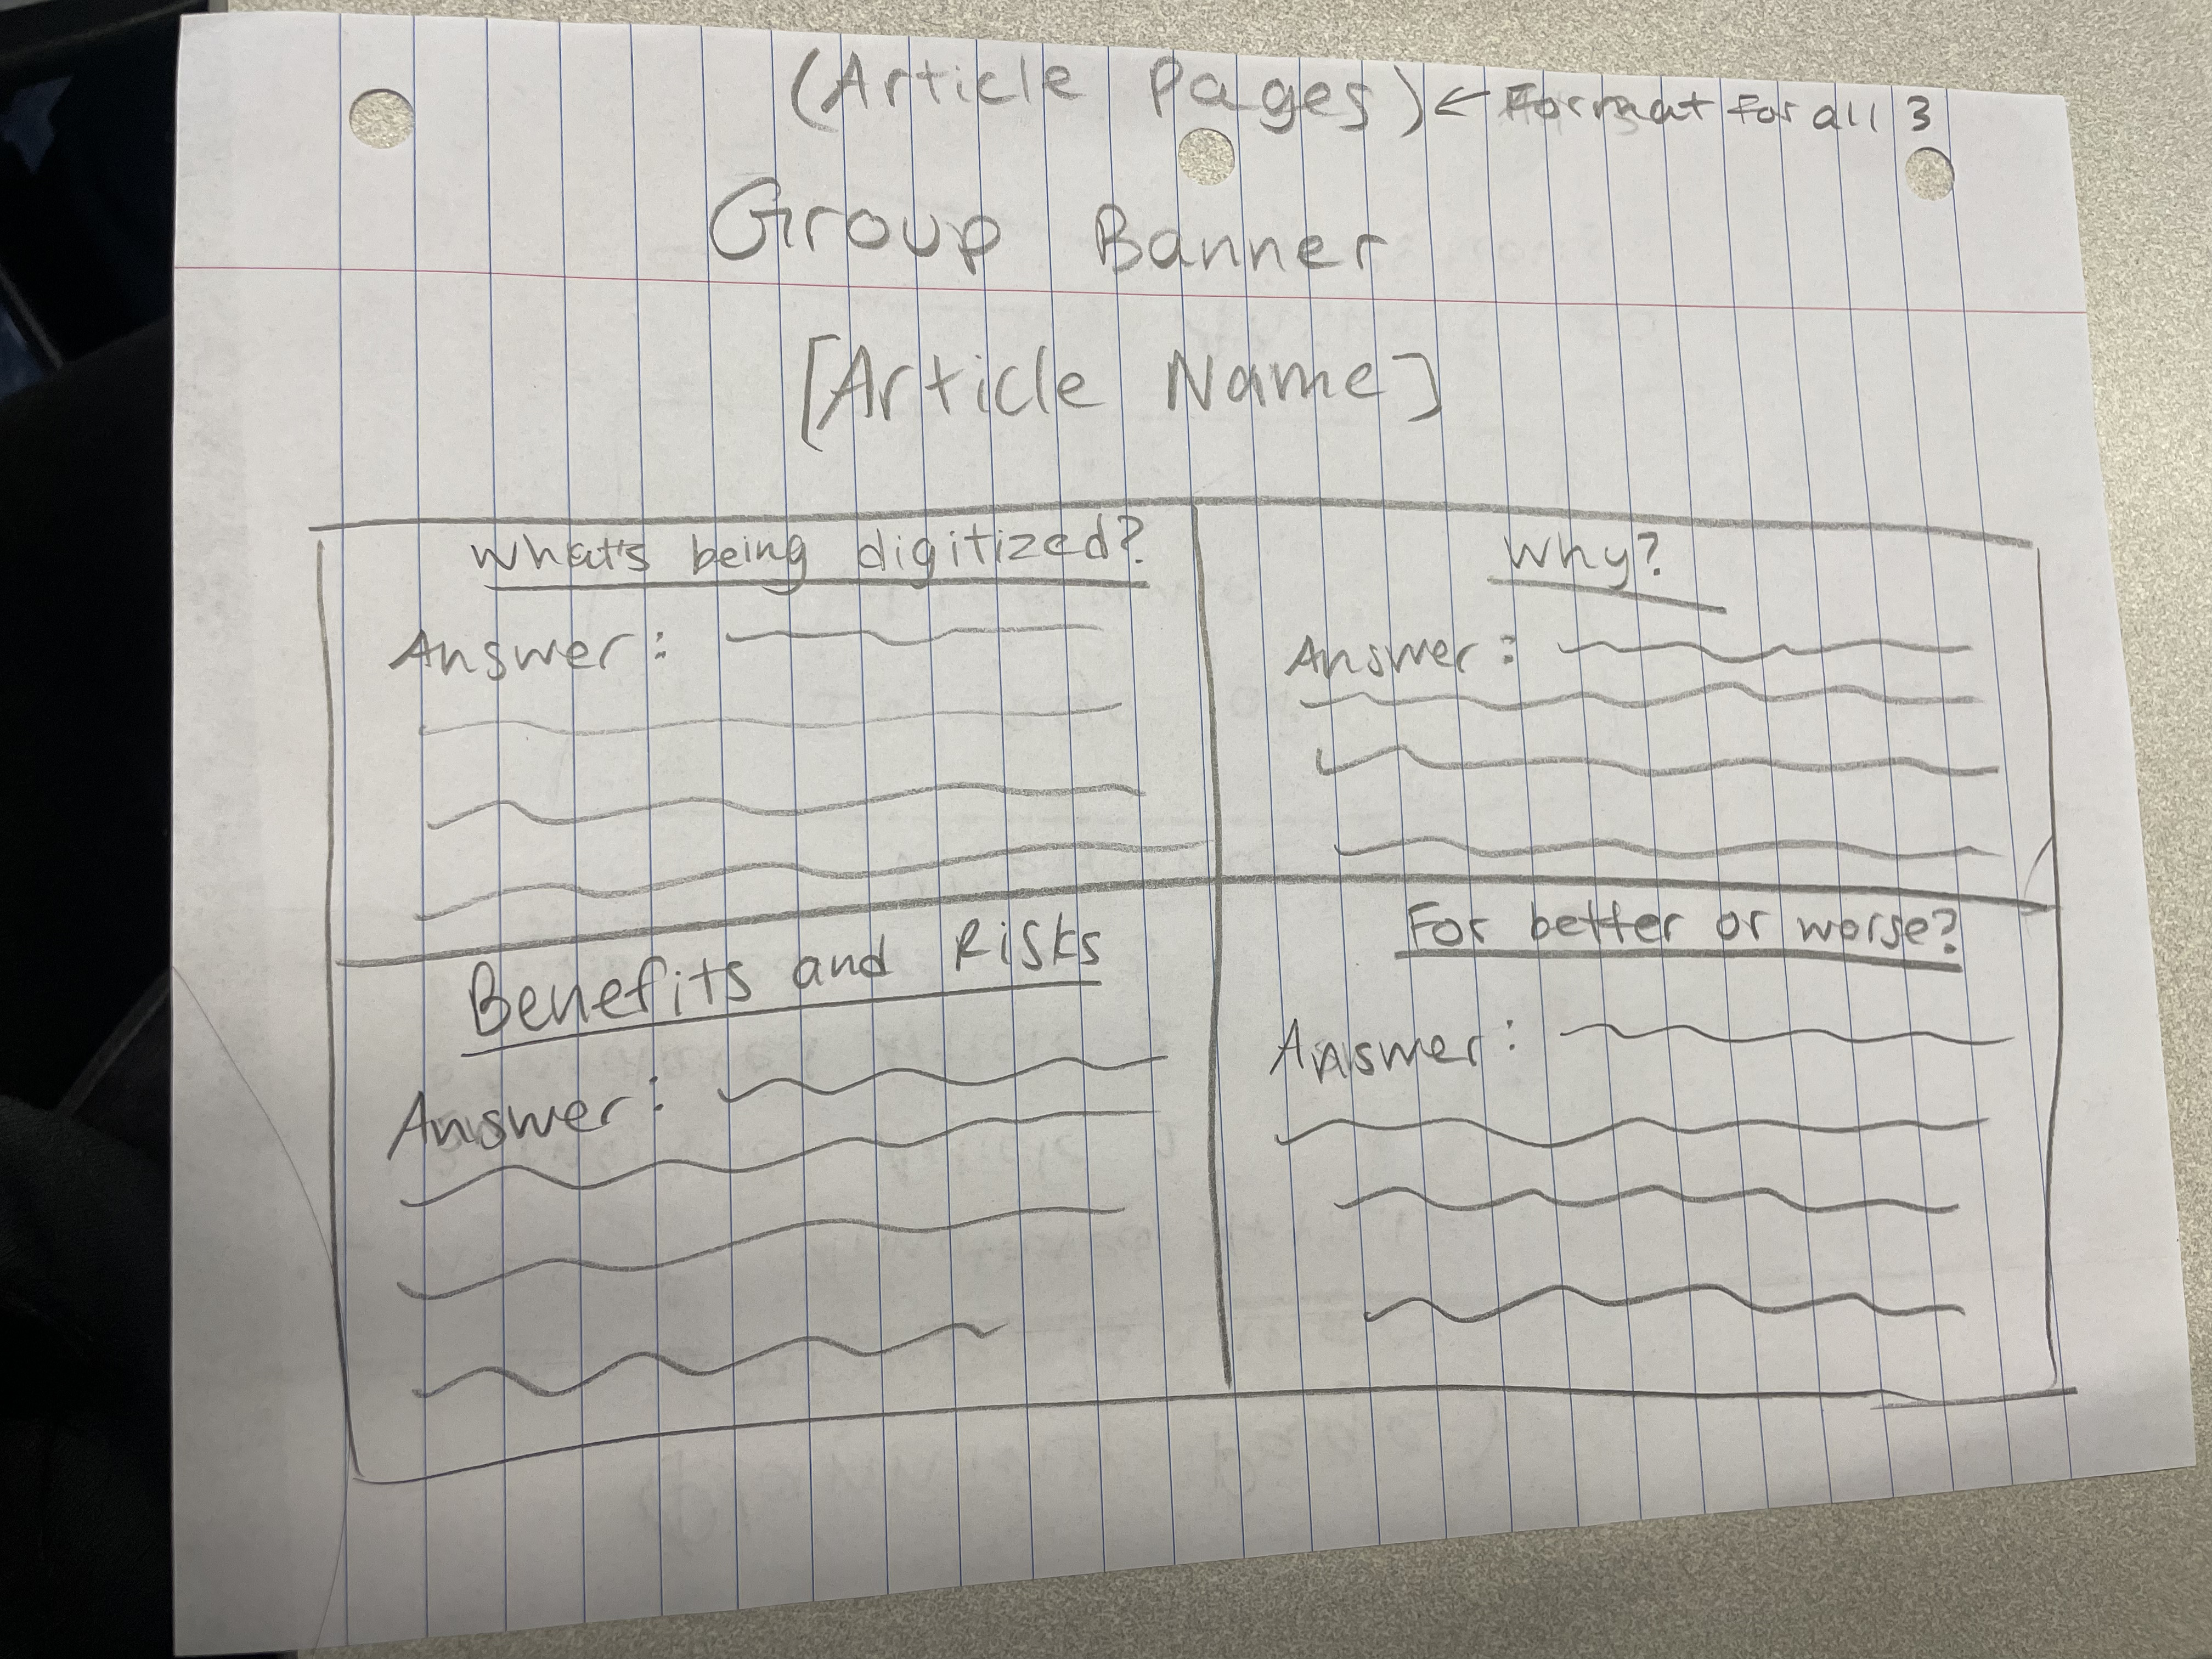 (Article Pages) ← Format for all 3
Group Banner
[Article Name]
What's being digitized?
Answer:
Why?
Answer:
Benefits and Risks
Answer:
For better or worse?
Answer: